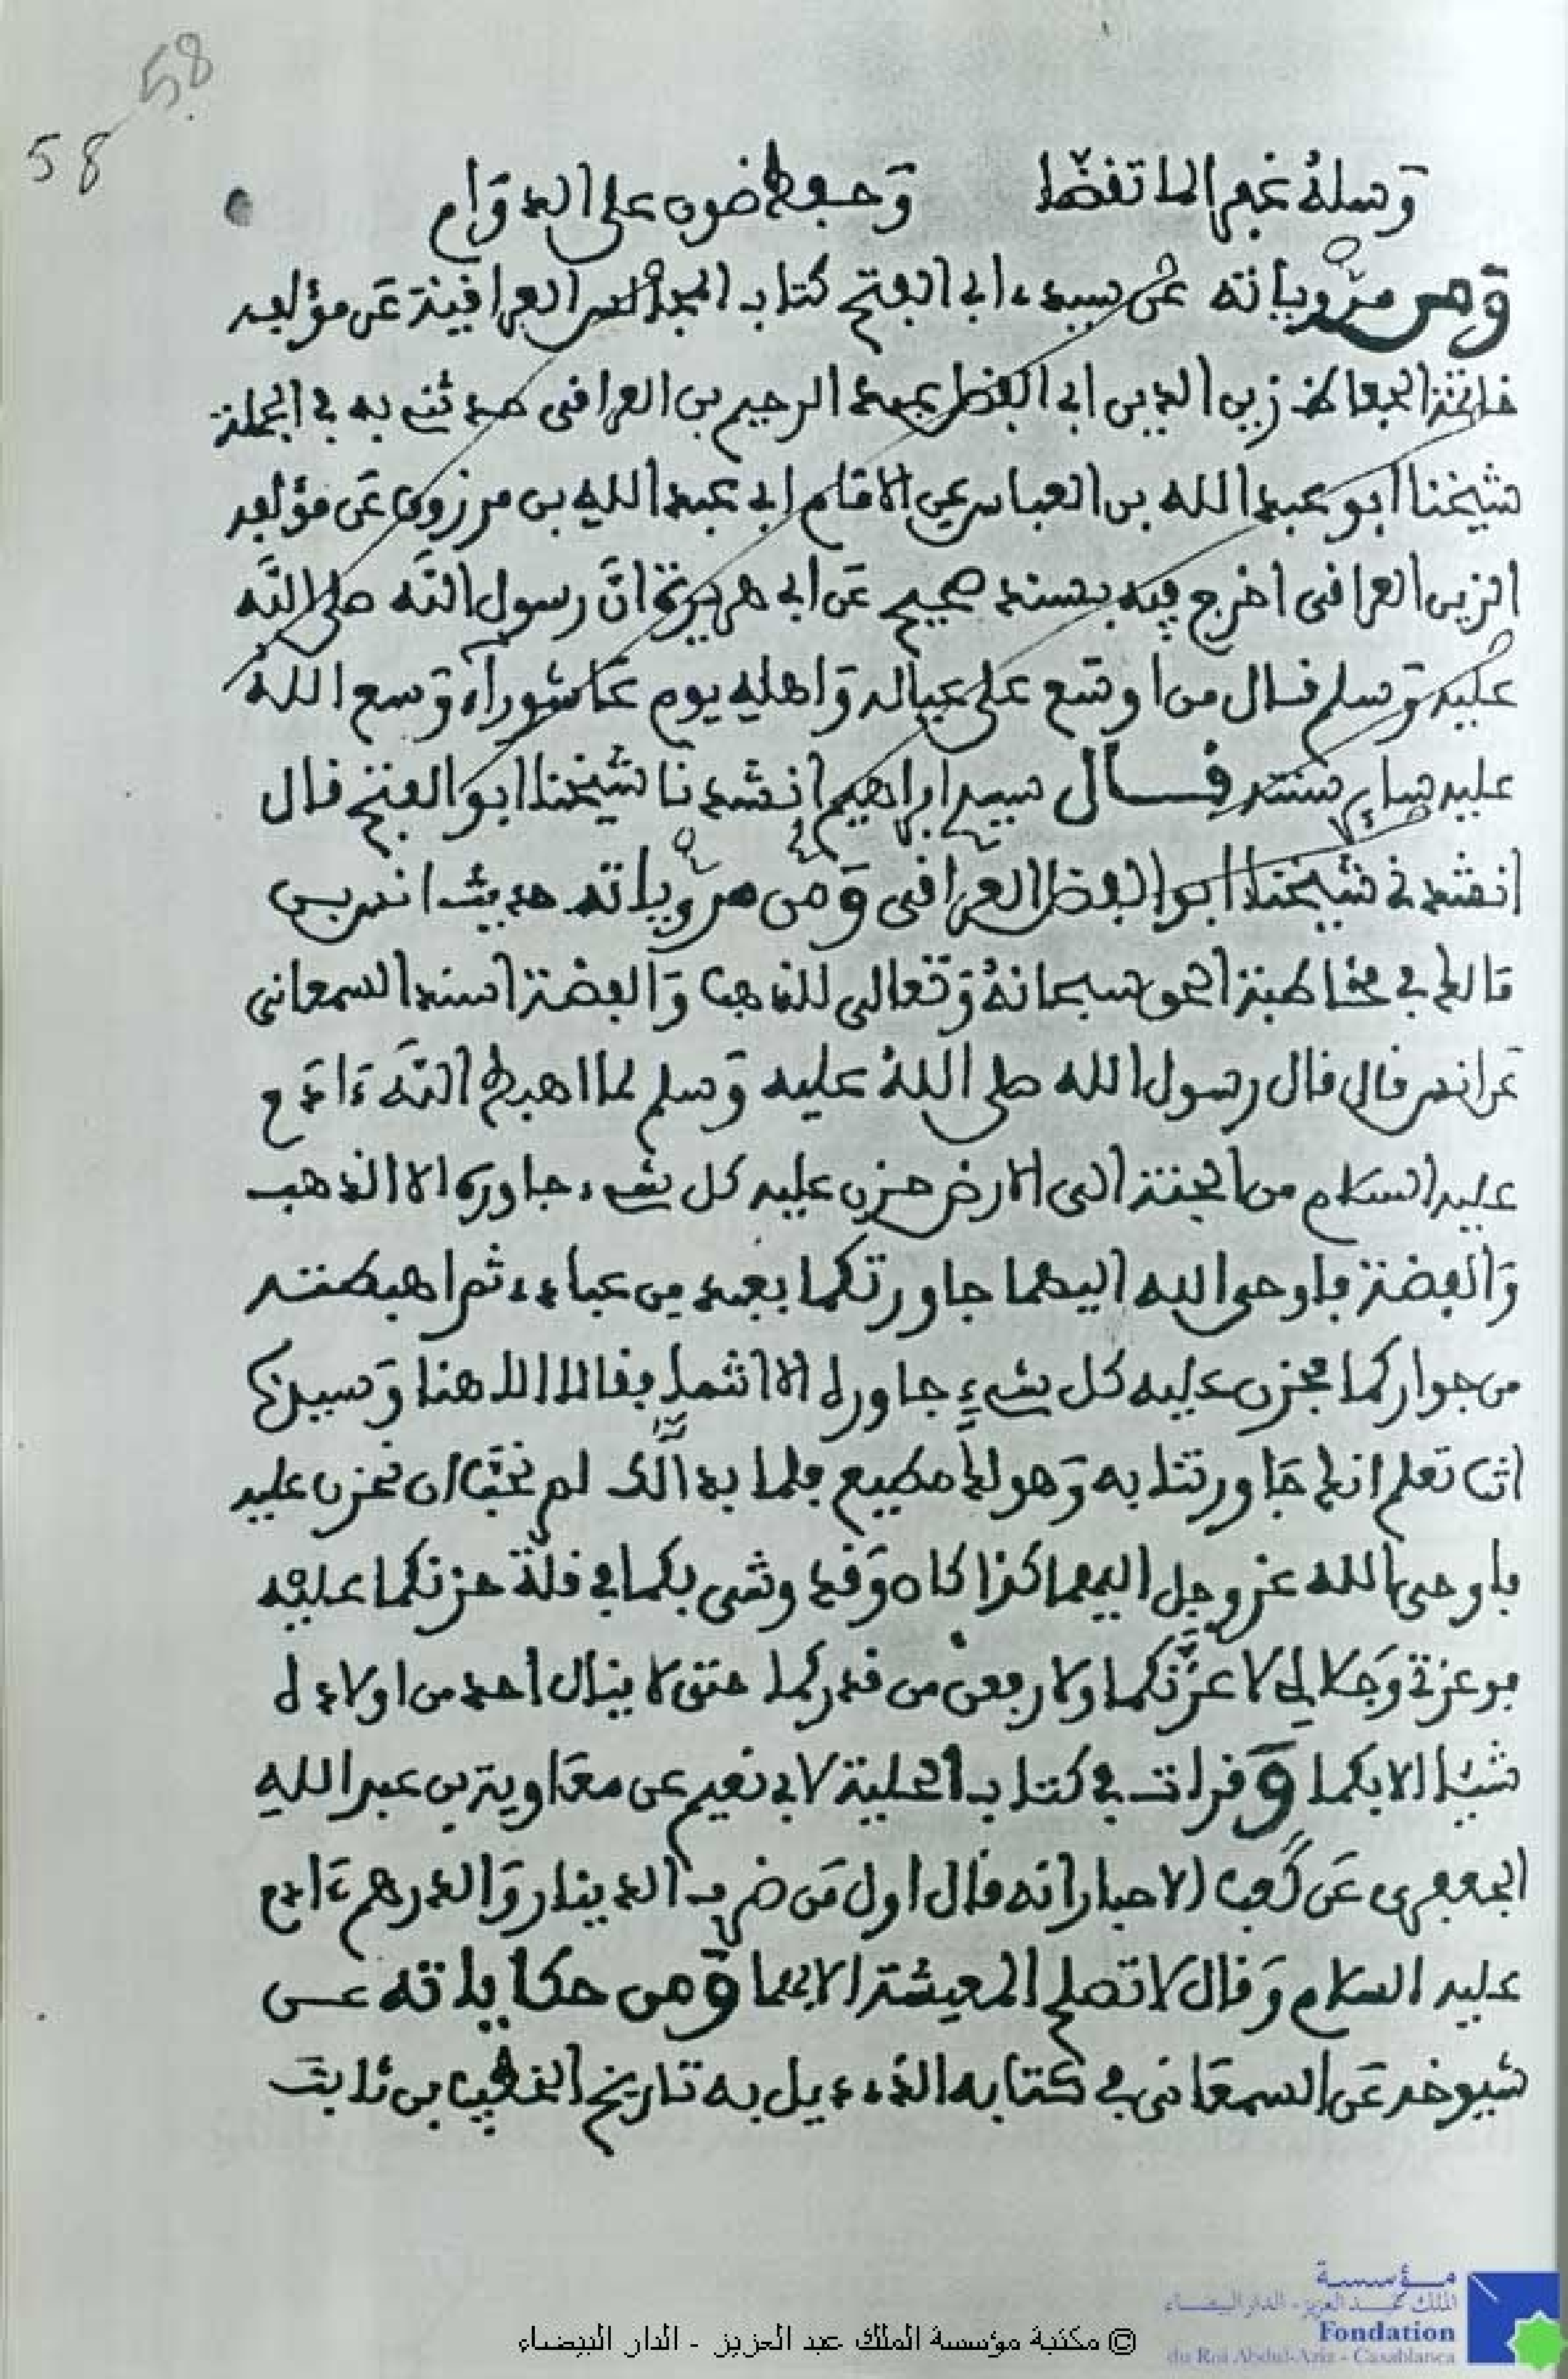 58
58
وسله عجم الما تفضلا وحبه ضوه على الدوام
ومن مروياته عن سيدي ابي الفتح كتاب المجالس العراقية عن مؤلفه
خاتمة الحفاظ زين الدين ابي الفضل عبد الرحيم بن العراقي حدثني به في الجملة
شيخنا ابو عبد الله بن العباس عن الامام ابي عبد الله بن مرزوق عن مؤلفه
الزين العراقي اخرج فيه بسند صحيح عن ابي هريرة ان رسول الله صلى الله
عليه وسلم قال من اوسع على عياله واهله يوم عاشوراء وسع الله
عليه سائر سنته قال سيدي ابراهيم انشدنا شيخنا ابو الفتح قال
انشدني شيخنا ابو الفضل العراقي ومن مروياته حديث انس بن
مالك في مخاطبة الحق سبحانه وتعالى للذهب والفضة اسند السمعاني
عن انس قال قال رسول الله صلى الله عليه وسلم لما اهبط الله ءادم
عليه السلام من الجنة الى الارض حزن عليه كل شيء جاوره الا الذهب
والفضة فاوحى الله اليهما جاورتكما بعبد من عبادي ثم اهبطته
من جواركما فحزن عليه كل شيء جاوره الا انتما فقالا الاهنا وسيدنا
انت تعلم انك جاورتنا به وهو لك مطيع فلما بدا لك لم نحب ان نحزن عليه
فاوحى الله عز وجل اليهما كذا كاه وقد وشى بكما في قلة حزنكما عليه
فوعزتي وجلالي لاعزنكما ولارفعن من قدركما حتى لا ينال احد من اولاده
شيئا الا بكما وقرات في كتاب الحلية لابي نعيم عن معاوية بن عبد الله
الجعفري عن كعب الاحبار انه قال اول من ضرب الدينار والدرهم ءادم
عليه السلام وقال لا تصلح المعيشة الا بهما ومن حكاياته عن
شيوخه عن السمعاني في كتابه الذي ذيل به تاريخ الخطيب بن ثابت
مؤسسة
الملك عبد العزيز - الدار البيضاء
Fondation
du Roi Abdul-Aziz - Casablanca
© مكتبة مؤسسة الملك عبد العزيز - الدار البيضاء